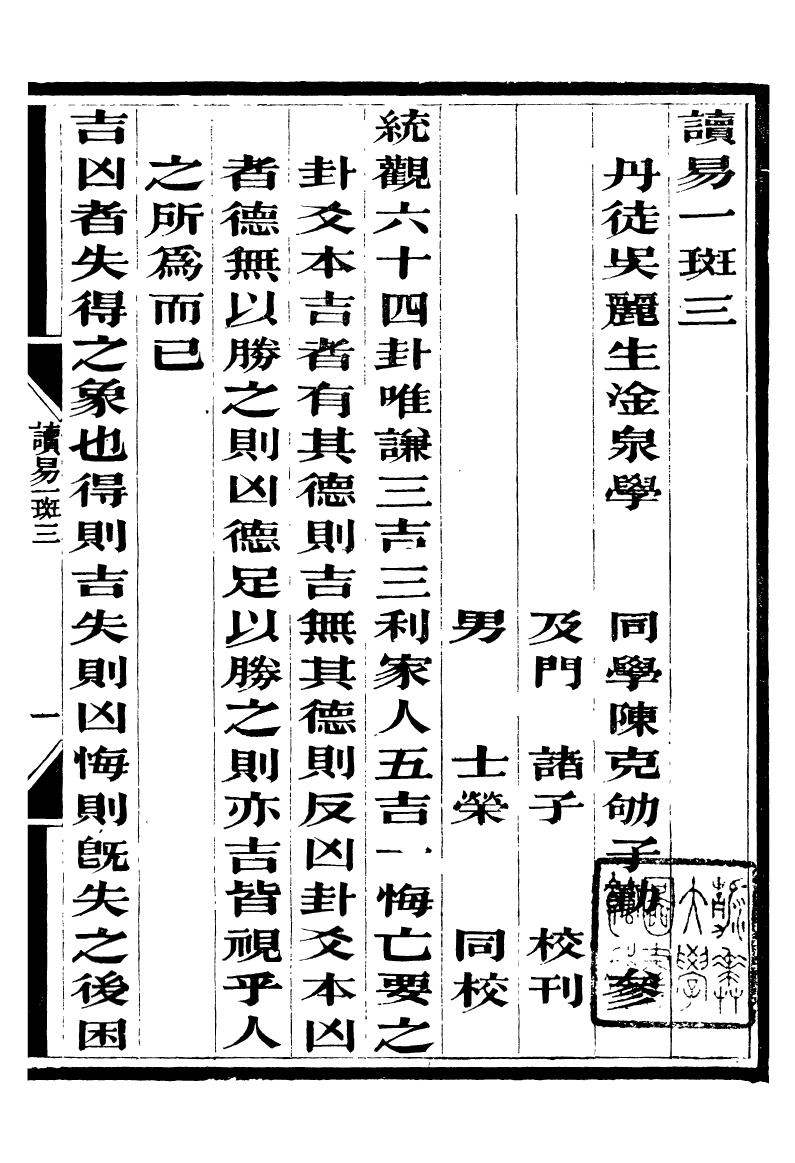 讀易一斑三
丹徒吳麗生淦泉學　同學陳克劬子勤參
及門　諸子　校刊
男　士榮　同校
統觀六十四卦唯謙三吉三利家人五吉一悔亡要之
卦爻本吉者有其德則吉無其德則反凶卦爻本凶
者德無以勝之則凶德足以勝之則亦吉皆視乎人
之所爲而已
吉凶者失得之象也得則吉失則凶悔則旣失之後困
讀易一斑三
一